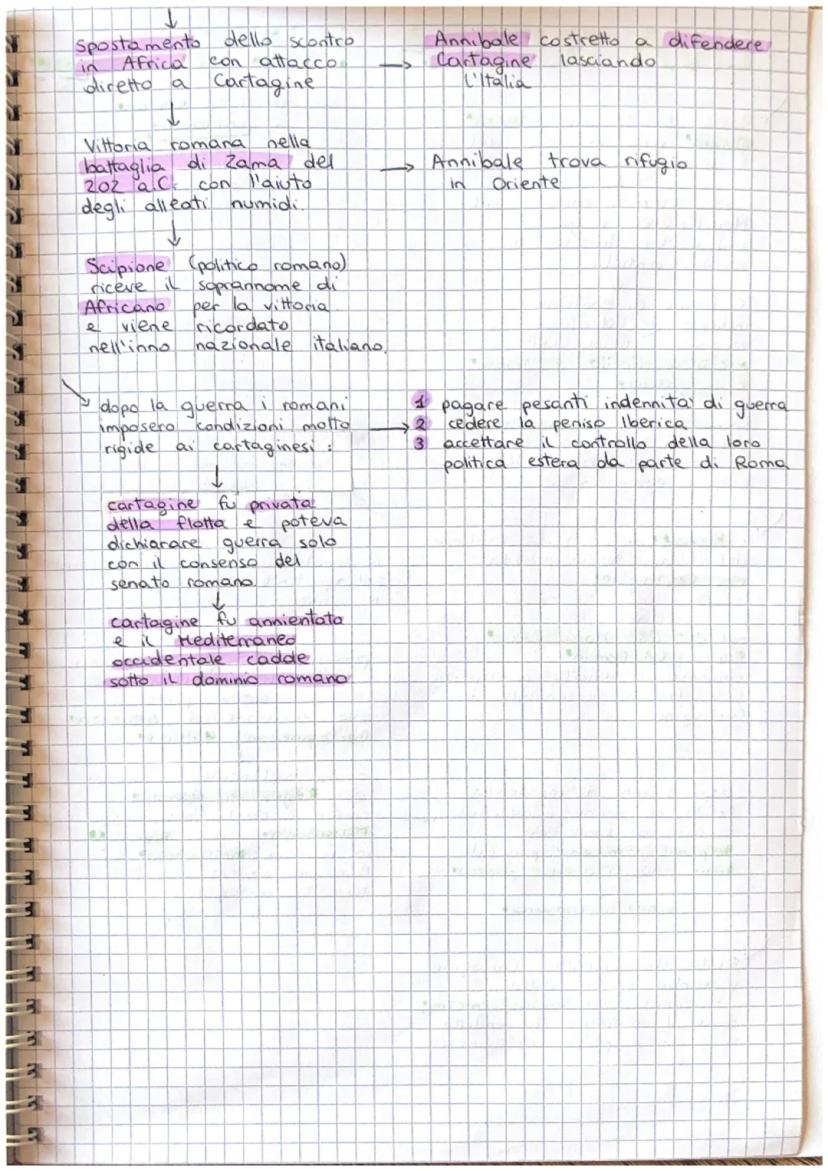 Spostamento dello scontro
in Africa con attacco
diretto a Cartagine
Annibale costretto a difendere
Cartagine lasciando
l'Italia
Vittoria romana nella
battaglia di Zama del
202 a.C. con l'aiuto
degli alleati numidi.
Annibale trova rifugio
in Oriente
Scipione (politico romano)
riceve il soprannome di
Africano per la vittoria
e viene ricordato
nell'inno nazionale italiano.
dopo la guerra i romani
imposero condizioni molto
rigide ai cartaginesi :
1 pagare pesanti indennità di guerra
2 cedere la peniso Iberica
3 accettare il controllo della loro
politica estera da parte di Roma
cartagine fu privata
della flotta e poteva
dichiarare guerra solo
con il consenso del
senato romano.
cartagine fu annientata
e il Mediterraneo
occidentale cadde
sotto il dominio romano